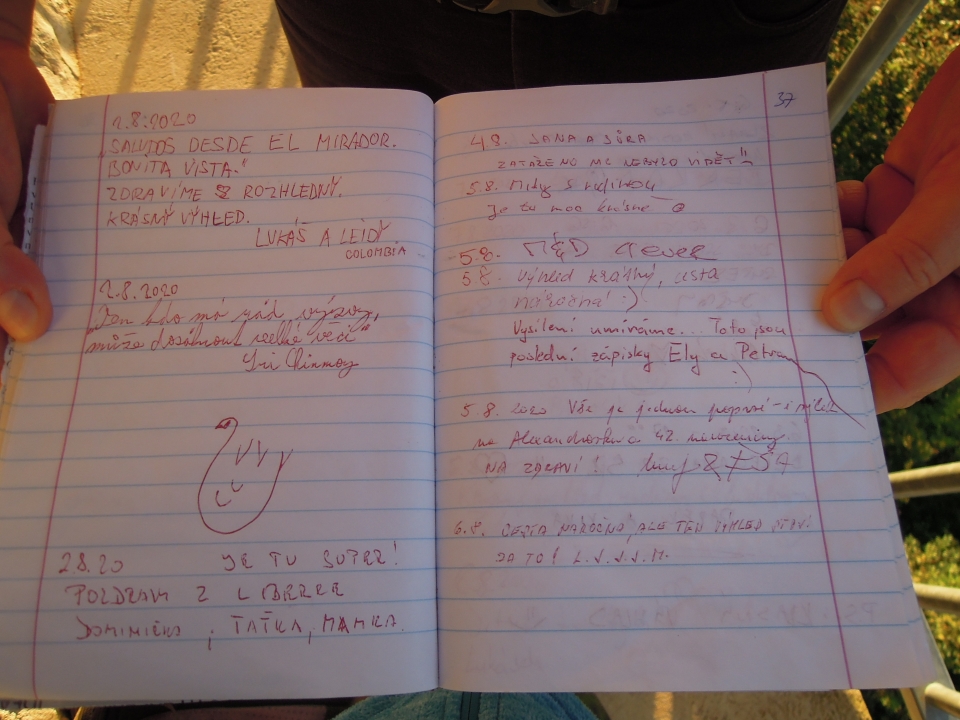 2.8.2020
SALUDOS DESDE EL MIRADOR.
BONITA VISTA."
ZDRAVÍME Z ROZHLEDNY.
KRÁSNÝ VÝHLED.
LUKÁŠ A LEIDY
COLOMBIA
2.8.2020
Jen kdo má rád výzvy,
může dosáhnout velké věci"
Sri Chinmoy
28.20 JE TU SUPER!
POZDRAV Z LIBEREC
TAŤKA, MAMKA.
37
4.8. JANA A JŮRA
ZATAŽENO NIC NEBYLO VIDĚT!!
5.8. s rodinou
Je tu moc krásně
5.8. M&D 4ever
5.8. Výhled krátký, cesta
náročná :)
Vysílení umíráme... Toto jsou
poslední zápisky Ely a Petra
:)
5.8. 2020 Vše je jednou poprvé
na Alexandrovku a 42 narozeniny
NA ZDRAVÍ!
6.8. CESTA NÁROČNÁ, ALE TEN VÝHLED STOJÍ
ZA TO! L.J.J.J.M.